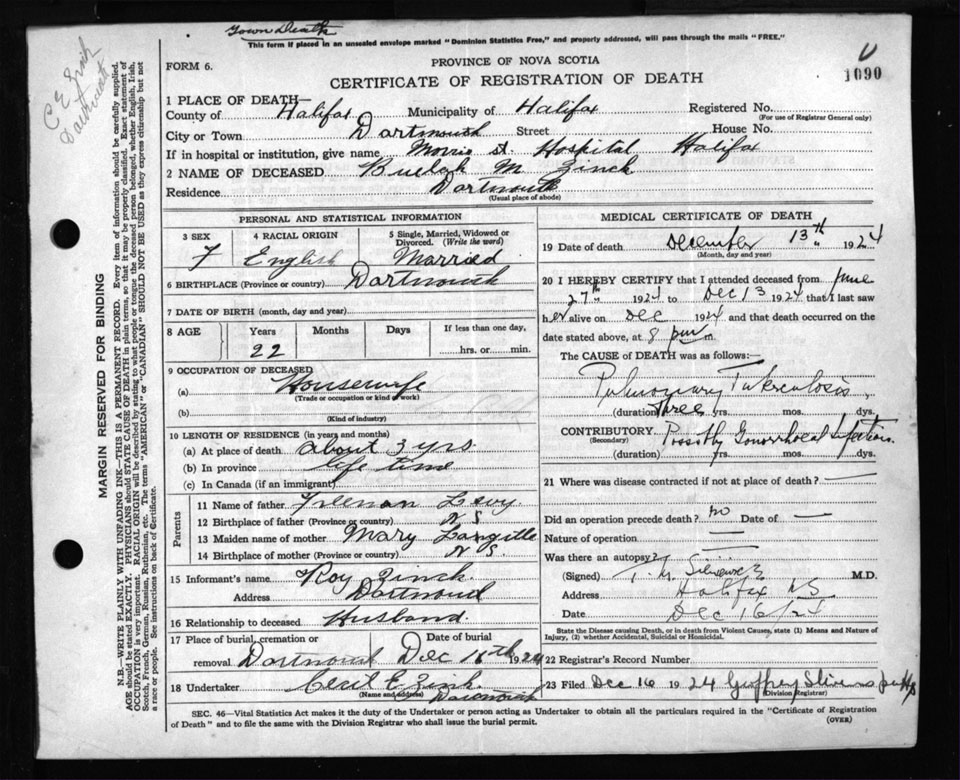 Town Death
This form if placed in an unsealed envelope marked "Dominion Statistics Free," and properly addressed, will pass through the mails "FREE."
FORM 6.
PROVINCE OF NOVA SCOTIA
CERTIFICATE OF REGISTRATION OF DEATH
1090
C E Zink
Dartmouth
MARGIN RESERVED FOR BINDING
N.B.—WRITE PLAINLY WITH UNFADING INK—THIS IS A PERMANENT RECORD. Every item of information should be carefully supplied.
AGE should be stated EXACTLY. PHYSICIANS should STATE CAUSE OF DEATH in plain terms, so that it may be properly classified. Exact statement of
OCCUPATION is very important. RACIAL ORIGIN will be described by stating to what people or tongue the deceased person belonged, whether English, Irish,
Scotch, French, German, Russian, Ruthenian, etc. The terms "AMERICAN" or "CANADIAN" SHOULD NOT BE USED as they express citizenship but not
a race or people. See instructions on back of Certificate.
1 PLACE OF DEATH—
County of Halifax Municipality of Halifax Registered No.
(For use of Registrar General only)
City or Town Dartmouth Street House No.
If in hospital or institution, give name Morris St. Hospital Halifax
2 NAME OF DECEASED Beulah M. Zinck
Residence Dartmouth
(Usual place of abode)
PERSONAL AND STATISTICAL INFORMATION
3 SEX 4 RACIAL ORIGIN 5 Single, Married, Widowed or Divorced. (Write the word)
F English Married
6 BIRTHPLACE (Province or country) Dartmouth
7 DATE OF BIRTH (month, day and year)
8 AGE Years Months Days If less than one day,
22 hrs. or min.
9 OCCUPATION OF DECEASED
(a) Housewife
(Trade or occupation or kind of work)
(b)
(Kind of industry)
10 LENGTH OF RESIDENCE (in years and months)
(a) At place of death about 3 yrs
(b) In province life time
(c) In Canada (if an immigrant)
Parents
11 Name of father Freeman Levy
12 Birthplace of father (Province or country) N S
13 Maiden name of mother Mary Langille
14 Birthplace of mother (Province or country) N S.
15 Informant's name Roy Zinck
Address Dartmouth
16 Relationship to deceased Husband.
17 Place of burial, cremation or removal Dartmouth Date of burial Dec 16th 1924
18 Undertaker Cecil E. Zink.
(Name and address) Dartmouth
MEDICAL CERTIFICATE OF DEATH
19 Date of death December 13th 1924
(Month, day and year)
20 I HEREBY CERTIFY that I attended deceased from June
27th 1924 to Dec 13 1924 that I last saw
her alive on Dec 1924 and that death occurred on the
date stated above, at 8 pm m.
The CAUSE of DEATH was as follows:—
Pulmonary Tuberculosis
(duration) Three yrs. mos. dys.
CONTRIBUTORY Possibly Gonorrhoeal Infection.
(Secondary)
(duration) yrs. mos. dys.
21 Where was disease contracted if not at place of death? —
Did an operation precede death? no Date of —
Nature of operation —
Was there an autopsy? —
(Signed) M.D.
Address Halifax NS
Date Dec 16/24
State the Disease causing Death, or in death from Violent Causes, state (1) Means and Nature of
Injury, (2) whether Accidental, Suicidal or Homicidal.
22 Registrar's Record Number
23 Filed Dec 16 1924 Geoffrey Stevens
(Division Registrar)
SEC. 46—Vital Statistics Act makes it duty of the Undertaker or person acting as Undertaker to obtain all the particulars required in the "Certificate of Registration
of Death" and to file the same with the Division Registrar who shall issue the burial permit.
(OVER)